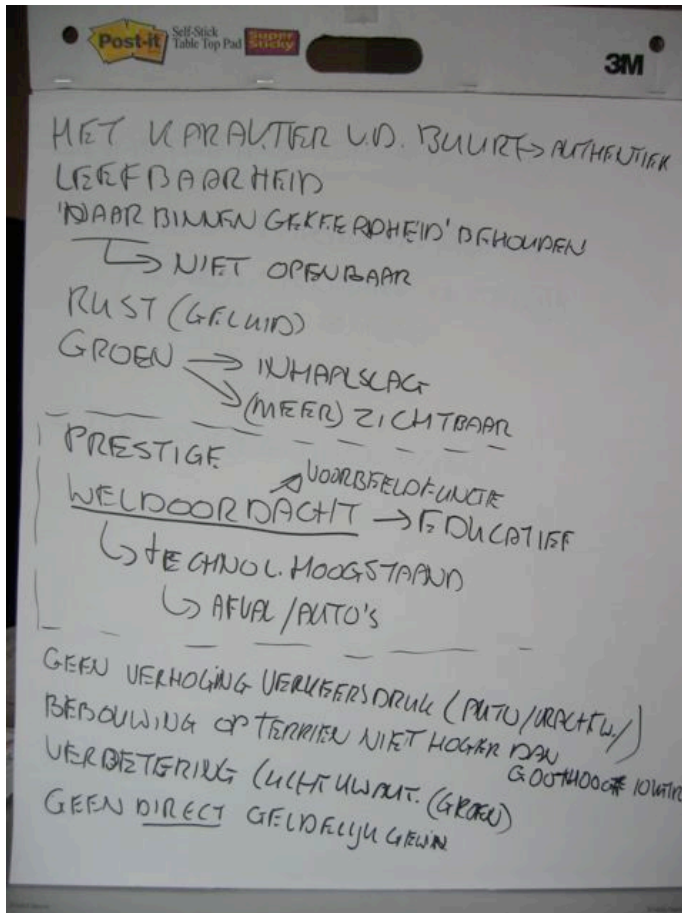 Post-it
Self-Stick
Table Top Pad
Super
Sticky
3M
HET KARAKTER V.D. BUURT → AUTHENTIEK
LEEFBAARHEID
'NAAR BINNEN GEKEERDHEID' BEHOUDEN
↳ NIET OPENBAAR
RUST (GELUID)
GROEN → INHAALSLAG
→ (MEER) ZICHTBAAR
PRESTIGE
→ VOORBEELDFUNCTIE
WELDOORDACHT → EDUCATIEF
↳ TECHNOL. HOOGSTAAND
↳ AFVAL/AUTO'S
GEEN VERHOGING VERKEERSDRUK (AUTO/VRACHTW./)
BEBOUWING OP TERREIN NIET HOGER DAN
GOOTHOOGTE
VERBETERING LUCHTKWALIT. (GROEN)
GEEN DIRECT GELDELIJK GEWIN